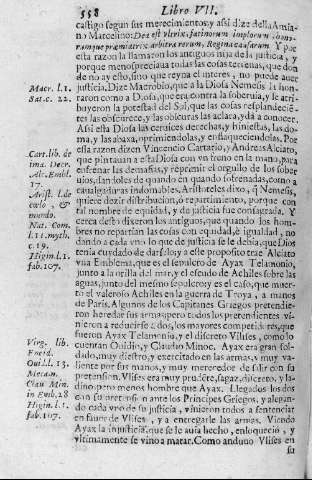 558 Libro VII.
castigo segun sus merecimientos; y assi dize della Amia-
no Marcelino: Dea est vltrix facinorum impiorum, bono-
rumque præmiatrix, arbitra rerum, Regina causarum. Y por
esta razon la llamaron los antiguos hija de la justicia, y
porque menospreciaua todas las cosas terrenas, que don
de no ay esto, sino que reyna el interes, no puede auer
Macr. l.1. justicia. Dize Macrobio, que a la Diosa Nemesis le hon-
Sat. c. 22. raron como a Diosa, que era contra la soberuia, y le atri-
buyeron la potestad del Sol, que las cosas resplandecie-
tes las obscurece, y las obscuras las aclara, y dà a conocer.
Assi esta Diosa las ceruizes derechas, y hiniestas, las do-
ma, y las abaxa, oprimiendolas, y enflaqueciendolas. Por
Cart. lib. de esta razon dizen Vincencio Cartario, y Andreas Alciato,
ima. Deor. que pintauan a esta Diosa con vn freno en la mano, para
Alc. Embl. enfrenar las demasias, y reprimir el orgullo de los sober
17. uios, siendoles de quando en quando sofrenadas, como a
Arist. l. de caualgaduras indomables. Aristoteles dixo, q̃ Nemesis,
cælo, & quiere dezir distribucion, ò repartimiento, porque con
mundo. tal nombre de equidad, y de justicia fue consagrada. Y
Nat. Com. cerca desto dixeron los antiguos, que quando los hom-
l.11. myth. bres no repartian las cosas con equidad, è igualdad, no
c. 19. dando a cada vno lo que de justicia se le debia, que Dios
Higin l.1. tenia cuydado de darselo; y a este proposito trae Alciato
fab. 107. vna Emblema, que es el sepulcro de Ayax Telamonio,
junto a la orilla del mar, y el escudo de Achiles sobre las
aguas, junto del mesmo sepulcro; y es el caso, que muer-
to el valeroso Achiles en la guerra de Troya, a manos
de Paris. Algunos de los Capitanes Griegos pretendie-
ron heredar sus armas; pero todos los pretendientes vi-
nieron a reducirse a dos, los mayores competidores, que
fueron Ayax Telamonio, y el discreto Vlises, como lo
Virg. lib. cuentan Ouidio, y Claudio Minoe. Ayax era gran sol-
Eneid. dado, muy diestro, y exercitado en las armas, y muy va-
Oui. l. 13. liente por sus manos, y muy merecedor de salir con su
Metam. pretension. Vlises era muy prudẽte, sagaz, discreto, y la-
Clau Min. dino; pero menos hombre que Ayax. Llegados los dos
in Emb. 28 con su pretension ante los Principes Griegos, y alegan-
Higin. l. 1. do cada vno de su justicia, vinieron todos a sentenciar
fab. 107. en fauor de Vlises, y a entregarle las armas. Viendo
Ayax la injusticia, que se le auia hecho, enloqueciò, y
vltimamente se vino a matar. Como anduuo Vlises en
su